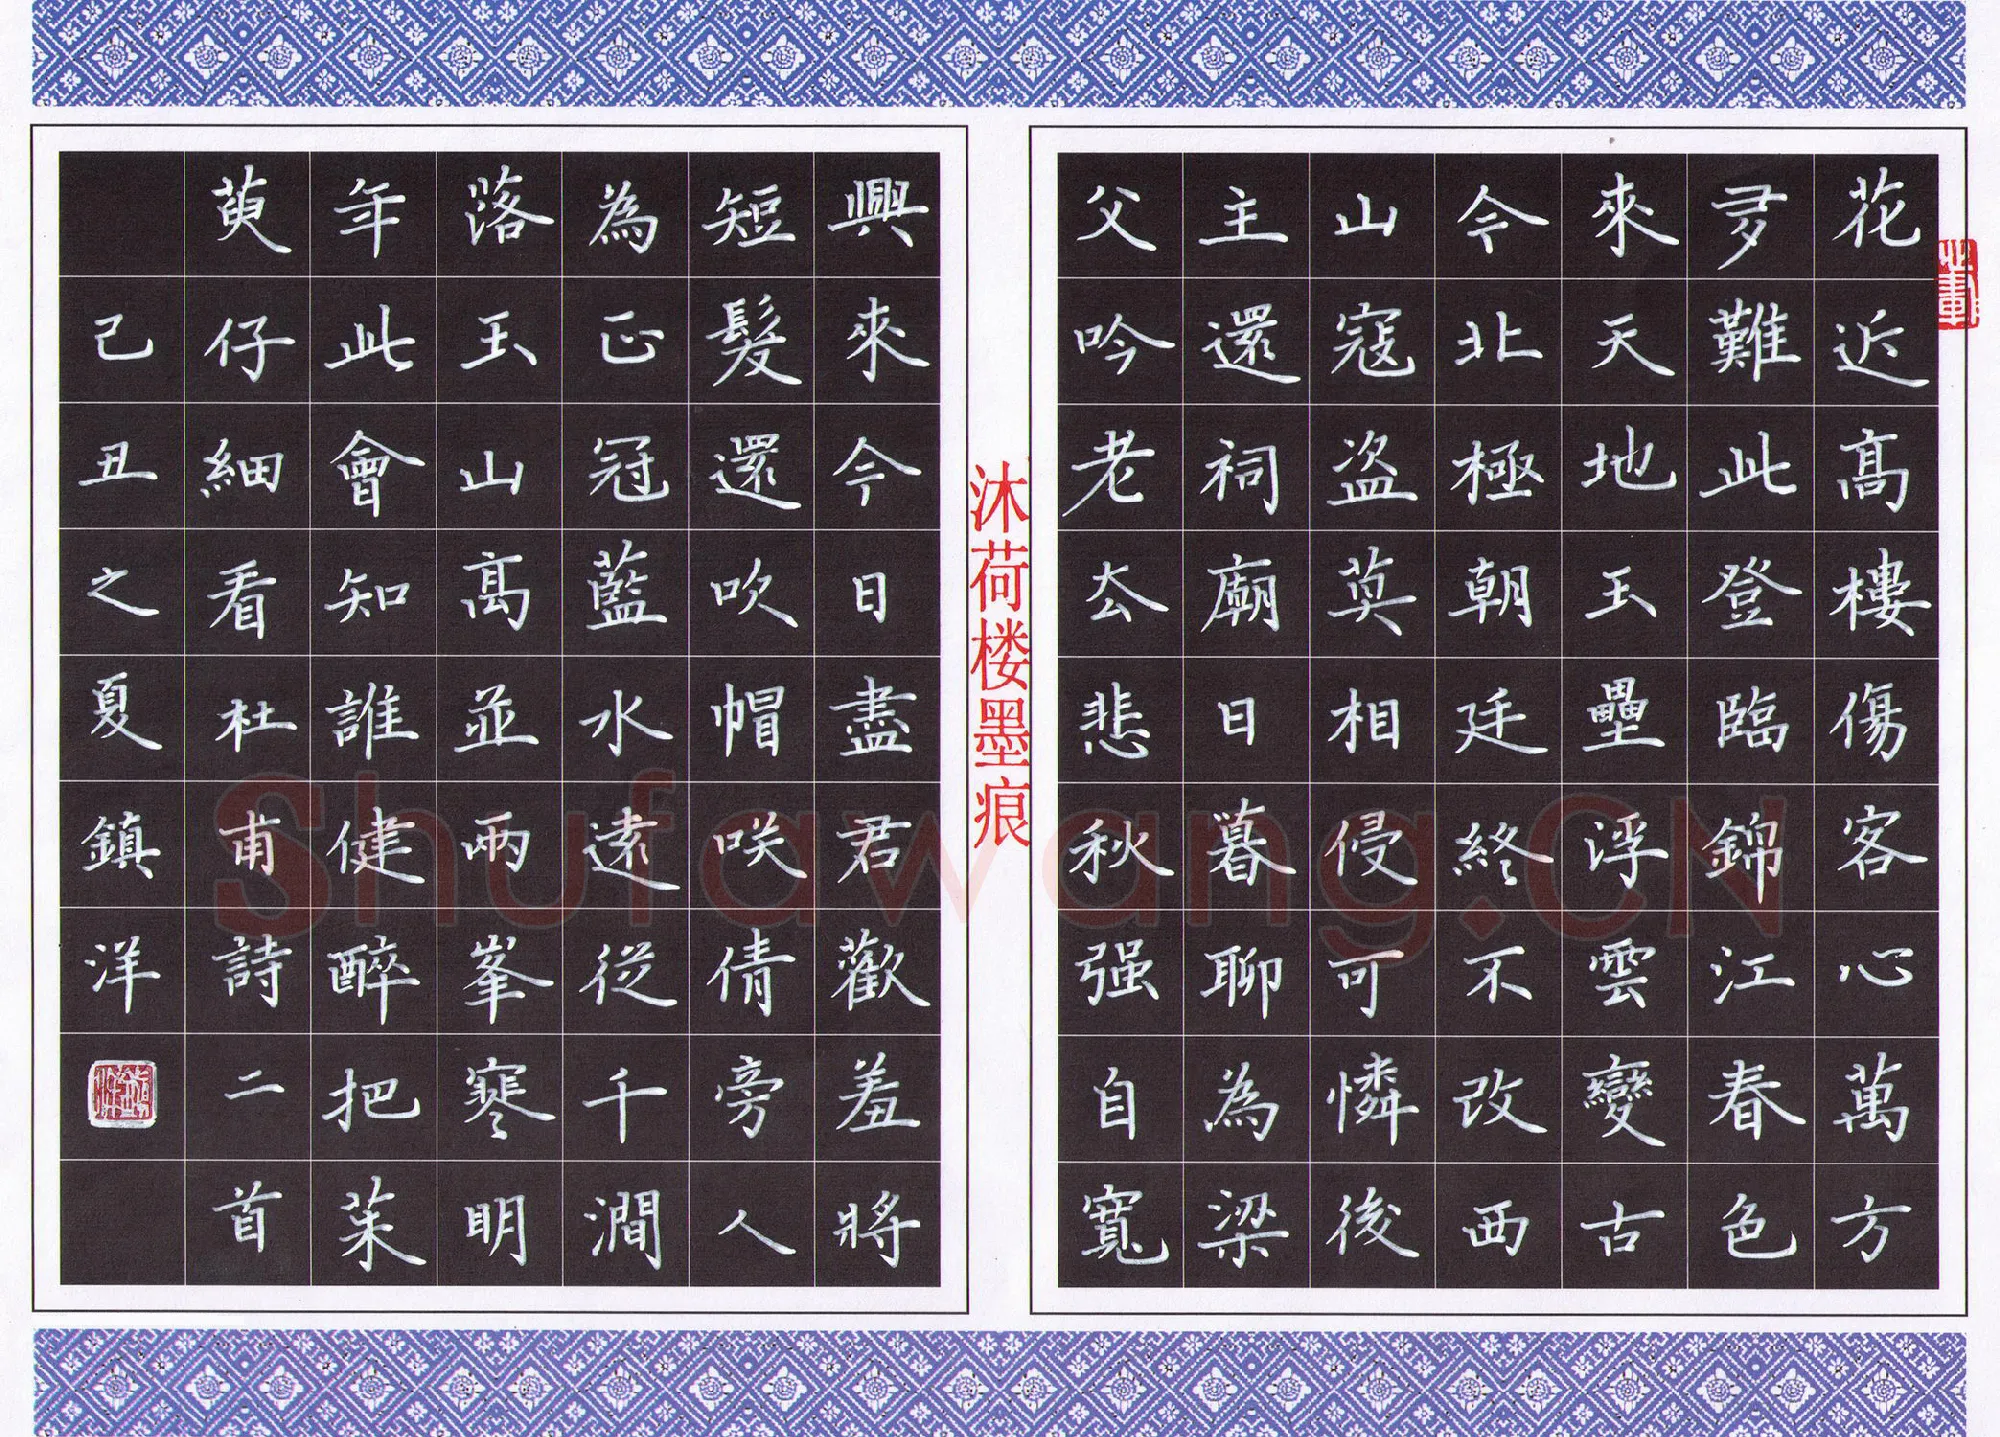 花近高樓傷客心萬方
多難此登臨錦江春色
來天地玉壘浮雲變古
今北極朝廷終不改西
山寇盜莫相侵可憐後
主還祠廟日暮聊為梁
父吟老去悲秋强自寬
沐荷楼墨痕
興來今日盡君歡羞將
短髮還吹帽咲倩旁人
為正冠藍水遠從千澗
落玉山高並兩峯寒明
年此會知誰健醉把茱
萸仔細看杜甫詩二首
己丑之夏鎮洋
Shufawang.CN